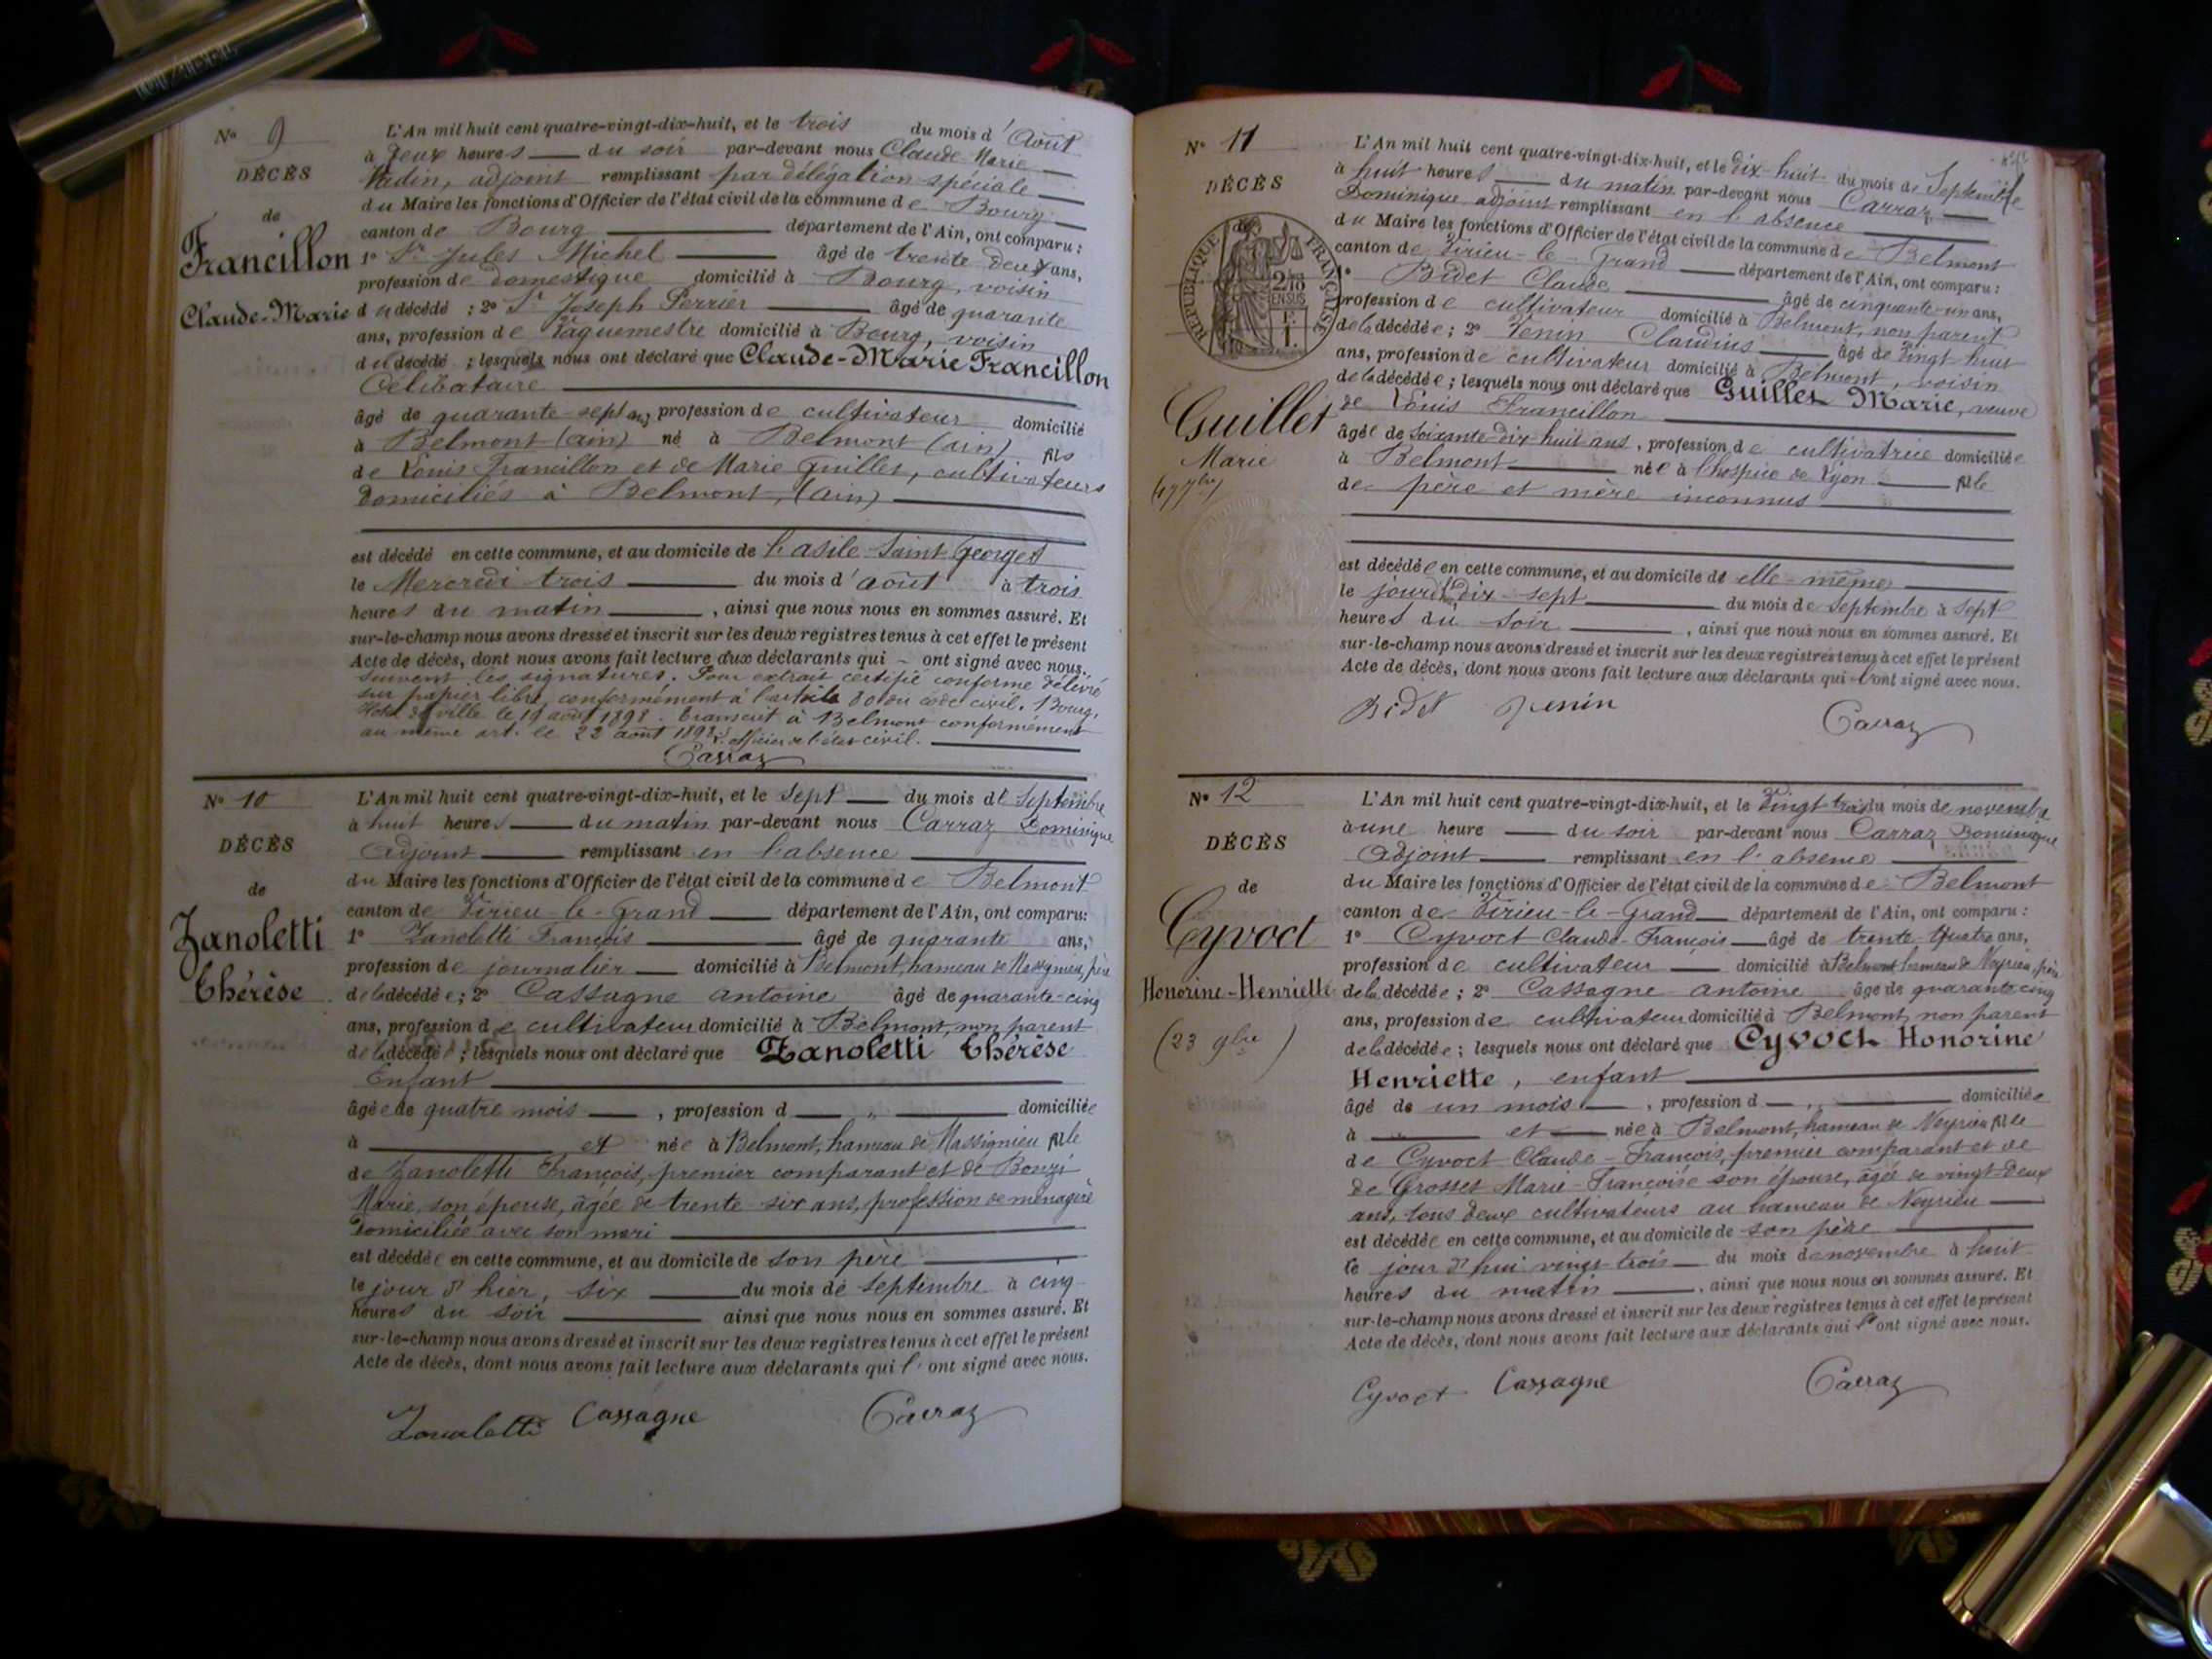 N° 9
DÉCÈS
de
Francillon
Claude-Marie
L'An mil huit cent quatre-vingt-dix-huit, et le trois du mois d'Août
à deux heures du soir par-devant nous Claude-Marie
Vadin, adjoint remplissant par délégation spéciale
du Maire les fonctions d'Officier de l'état civil de la commune de Bourg
canton de Bourg département de l'Ain, ont comparu :
1° Sr Jules Michel âgé de trente deux ans,
profession de domestique domicilié à Bourg, voisin
du décédé ; 2° Sr Joseph Perrier âgé de quarante
ans, profession de Vaguemestre domicilié à Bourg, voisin
du décédé ; lesquels nous ont déclaré que Claude-Marie Francillon
Célibataire
âgé de quarante-sept ans, profession de cultivateur domicilié
à Belmont (ain) né à Belmont (ain) fils
de Louis Francillon et de Marie Guillet, cultivateurs
domiciliés à Belmont, (ain)
est décédé en cette commune, et au domicile de l'asile Saint Georges
le Mercredi trois du mois d'août à trois
heures du matin, ainsi que nous nous en sommes assuré. Et
sur-le-champ nous avons dressé et inscrit sur les deux registres tenus à cet effet le présent
Acte de décès, dont nous avons fait lecture aux déclarants qui - ont signé avec nous.
suivent les signatures. Pour extrait certifié conforme délivré
sur papier libre conformément à l'article 80 du code civil. Bourg,
Hôtel de ville le 19 août 1898. Transcrit à Belmont conformément
au même art. le 22 août 1898. L'officier de l'état civil.
Carraz
N° 10
DÉCÈS
de
Zanoletti
Thérèse
L'An mil huit cent quatre-vingt-dix-huit, et le Sept du mois de Septembre
à huit heures du matin par-devant nous Carraz Dominique
Adjoint remplissant en l'absence
du Maire les fonctions d'Officier de l'état civil de la commune de Belmont
canton de Virieu-le-Grand département de l'Ain, ont comparu:
1° Zanoletti François âgé de quarante ans,
profession de journalier domicilié à Belmont, hameau de Massignieu, père
de la décédée ; 2° Cassagne antoine âgé de quarante-cinq
ans, profession de cultivateur domicilié à Belmont, non parent
de la décédée ; lesquels nous ont déclaré que Zanoletti Thérèse
Enfant
âgée de quatre mois, profession d " domiciliée
à et née à Belmont, hameau de Massignieu fille
de Zanoletti François, premier comparant et de Bonzi
Marie, son épouse, âgée de trente-six ans, profession de ménagère
domiciliée avec son mari
est décédée en cette commune, et au domicile de son père
le jour d'hier, six du mois de septembre à cinq
heures du soir ainsi que nous nous en sommes assuré. Et
sur-le-champ nous avons dressé et inscrit sur les deux registres tenus à cet effet le présent
Acte de décès, dont nous avons fait lecture aux déclarants qui l'ont signé avec nous.
Zanoletti Cassagne Carraz
N° 11
DÉCÈS
RÉPUBLIQUE FRANÇAISE
2/10
EN SUS
Guillet
Marie
(17 7bre)
L'An mil huit cent quatre-vingt-dix-huit, et le Dix-huit du mois de Septembre
à huit heures du matin par-devant nous Carraz
Dominique, adjoint remplissant en l'absence
du Maire les fonctions d'Officier de l'état civil de la commune de Belmont
canton de Virieu-le-Grand département de l'Ain, ont comparu :
1° Bidet Claude âgé de cinquante-un ans,
profession de cultivateur domicilié à Belmont, non parent
de la décédée ; 2° Jenin Claudius âgé de Vingt-huit
ans, profession de cultivateur domicilié à Belmont, voisin
de la décédée ; lesquels nous ont déclaré que Guillet Marie, veuve
de Louis Francillon
âgée de soixante-dix-huit ans, profession de cultivatrice domiciliée
à Belmont née à l'hospice de Lyon fille
de père et mère inconnus
est décédée en cette commune, et au domicile de elle-même
le jour d'hier dix-sept du mois de septembre à sept
heures du soir, ainsi que nous nous en sommes assuré. Et
sur-le-champ nous avons dressé et inscrit sur les deux registres tenus à cet effet le présent
Acte de décès, dont nous avons fait lecture aux déclarants qui l'ont signé avec nous.
Bidet Jenin Carraz
N° 12
DÉCÈS
de
Cyvoct
Honorine-Henriette
(23 9bre)
L'An mil huit cent quatre-vingt-dix-huit, et le Vingt-trois du mois de novembre
à une heure du soir par-devant nous Carraz Dominique
Adjoint remplissant en l'absence
du Maire les fonctions d'Officier de l'état civil de la commune de Belmont
canton de Virieu-le-Grand département de l'Ain, ont comparu :
1° Cyvoct Claude-François âgé de trente-quatre ans,
profession de cultivateur domicilié à Belmont hameau de Neyrieu, père
de la décédée ; 2° Cassagne antoine âgé de quarante cinq
ans, profession de cultivateur domicilié à Belmont, non parent
de la décédée ; lesquels nous ont déclaré que Cyvoct Honorine
Henriette, enfant
âgé de un mois, profession d " domiciliée
à et née à Belmont, hameau de Neyrieu fille
de Cyvoct Claude-François, premier comparant et de
de Grosset Marie-Françoise son épouse, âgée de vingt-deux
ans, tous deux cultivateurs au hameau de Neyrieu
est décédée en cette commune, et au domicile de son père
le jour d'hui vingt-trois du mois de novembre à huit
heures du matin, ainsi que nous nous en sommes assuré. Et
sur-le-champ nous avons dressé et inscrit sur les deux registres tenus à cet effet le présent
Acte de décès, dont nous avons fait lecture aux déclarants qui l'ont signé avec nous.
Cyvoct Cassagne Carraz